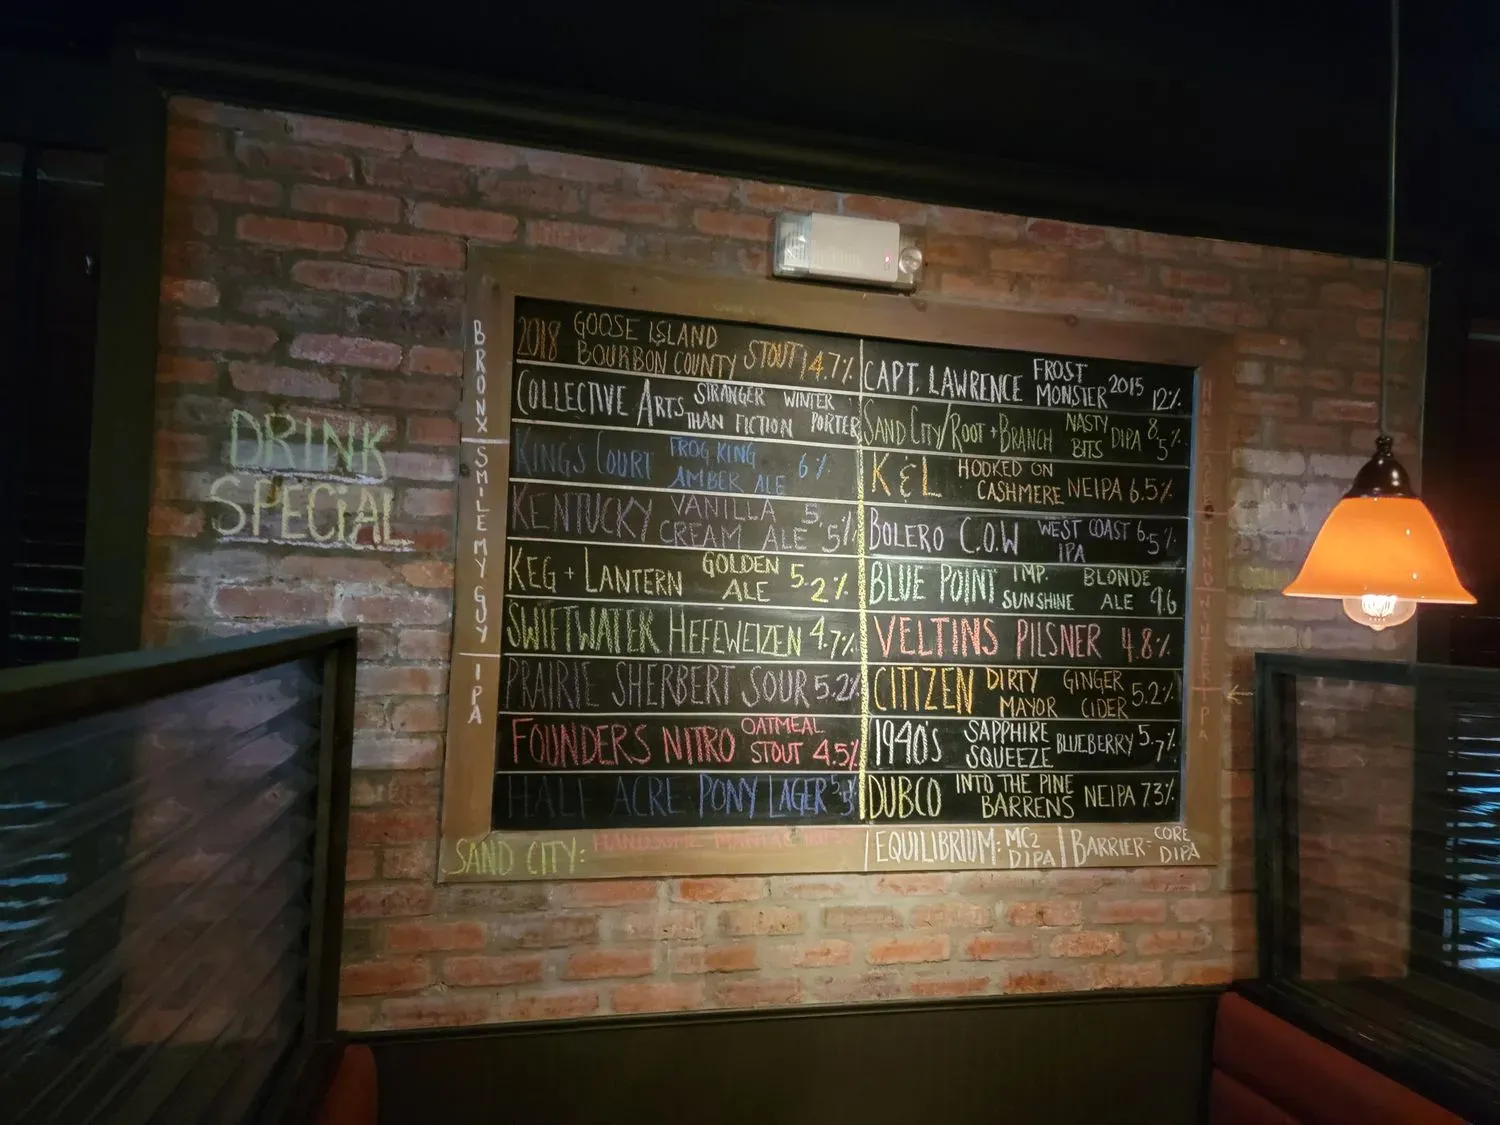 DRINK
SPECIAL
BRONX
SMILE MY GUY
IPA
2018 GOOSE ISLAND
BOURBON COUNTY STOUT 14.7%
COLLECTIVE ARTS STRANGER WINTER
THAN FICTION PORTER
KING'S COURT FROG KING
AMBER ALE 6%
KENTUCKY VANILLA
CREAM ALE 5.5%
KEG + LANTERN GOLDEN
ALE 5.2%
SWIFTWATER HEFEWEIZEN 4.7%
PRAIRIE SHERBERT SOUR 5.2%
FOUNDERS NITRO OATMEAL
STOUT 4.5%
HALF ACRE PONY LAGER
CAPT. LAWRENCE FROST
MONSTER 2015 12%
SAND CITY/ROOT + BRANCH NASTY
BITS DIPA 8.5%
K & L HOOKED ON
CASHMERE NEIPA 6.5%
BOLERO C.O.W WEST COAST
IPA 6.5%
BLUE POINT IMP. BLONDE
SUNSHINE ALE 9.6
VELTINS PILSNER 4.8%
CITIZEN DIRTY GINGER
MAYOR CIDER 5.2%
1940'S SAPPHIRE
SQUEEZE BLUEBERRY 5.7%
DUBCO INTO THE PINE
BARRENS NEIPA 7.3%
SAND CITY: HANDSOME MANIAC
EQUILIBRIUM: MC2
DIPA
BARRIER: CORE
DIPA
IPA